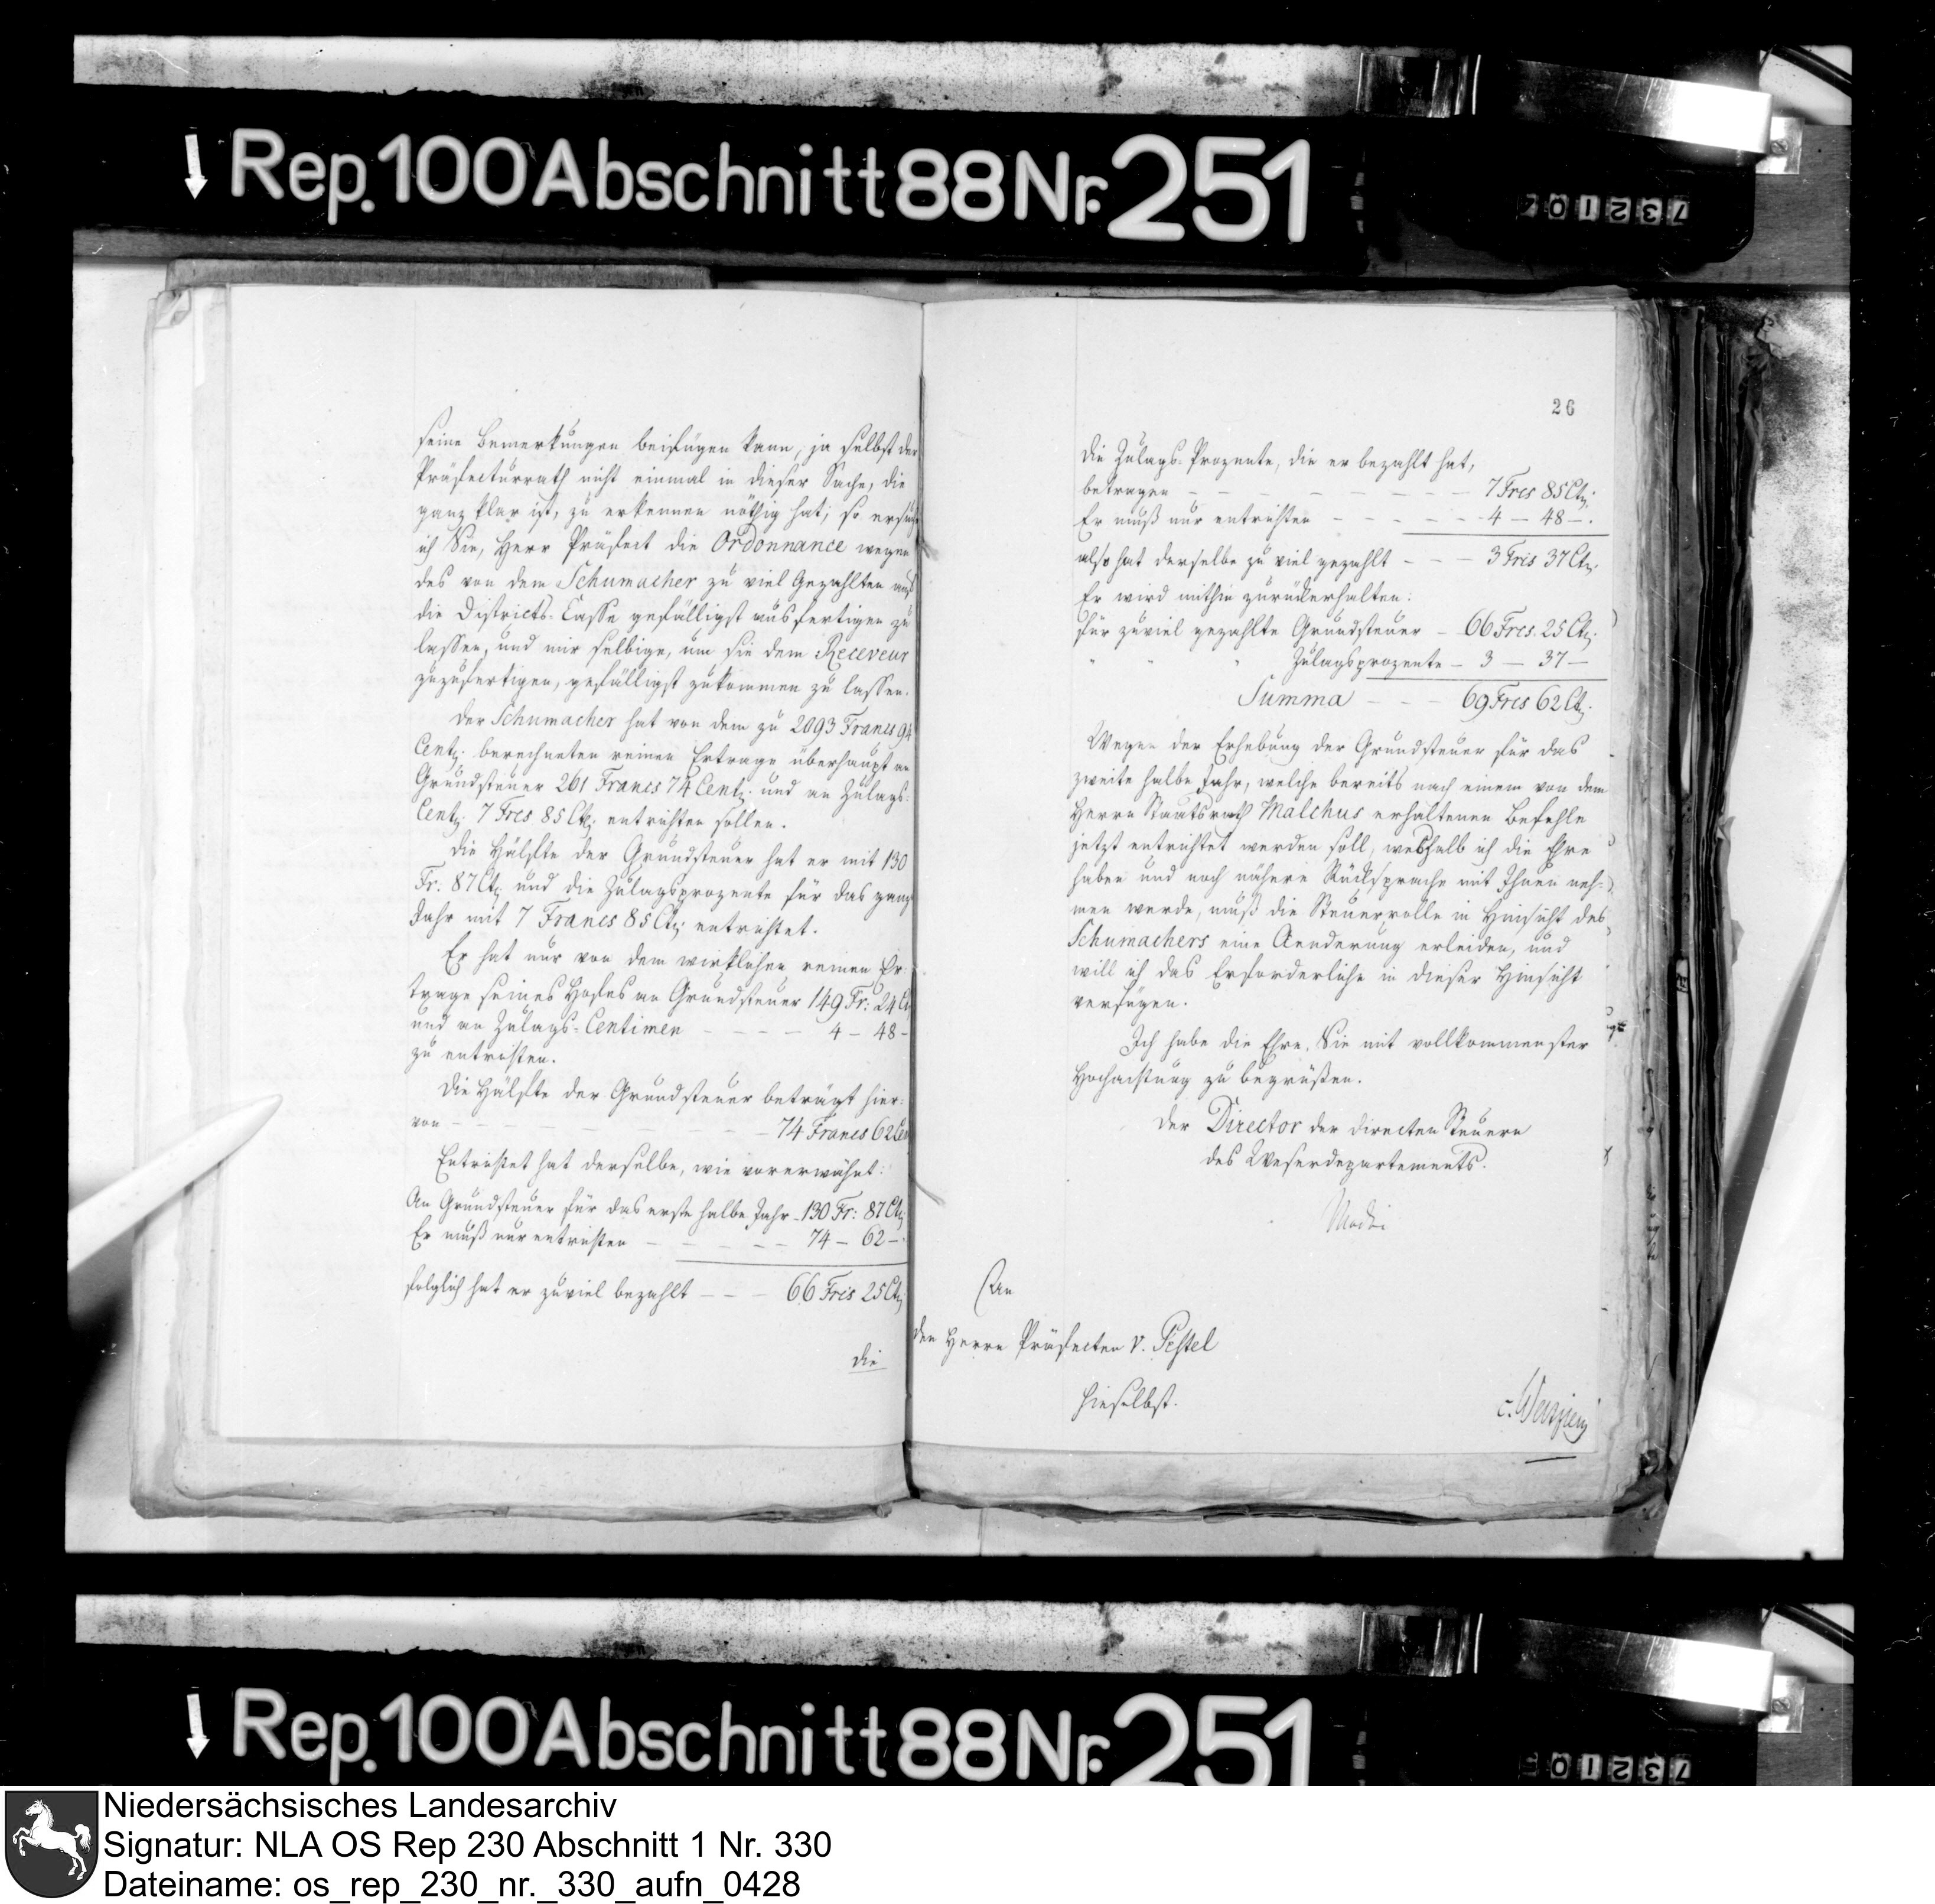 Rep. 100 Abschnitt 88 Nr. 251
732107
seine Bemerkungen beifügen kann, ja selbst der
Präfecturrath nicht einmal in dieser Sache, die
ganz klar ist, zu erkennen nöthig hat; so ersuche
ich Sie, Herr Präfect die Ordonnance wegen
des von dem Schumacher zu viel Gezahlten auf
die Districts-Casse gefälligst ausfertigen zu
lassen, und mir selbige, um sie dem Receveur
zuzufertigen, gefälligst zukommen zu lassen.
Der Schumacher hat von dem zu 2093 Francs 94
Cent. berechneten reinen Ertrage überhaupt an
Grundsteuer 261 Francs 74 Cent. und an Zulags-
Cent. 7 Frcs 85 Ct. entrichten sollen.
Die Hälfte der Grundsteuer hat er mit 130
Fr: 87 Ct. und die Zulagsprozente für das ganze
Jahr mit 7 Francs 85 Ct. entrichtet.
Er hat nur von dem wirklichen reinen Er-
trage seines Hofes an Grundsteuer 149 Fr: 24 Ct
und an Zulags-Centimen - - - - 4 - 48 -
zu entrichten.
Die Hälfte der Grundsteuer beträgt hier-
von - - - - - - - 74 Francs 62 Cen
Entrichtet hat derselbe, wie vorerwähnt:
An Grundsteuer für das erste halbe Jahr - 130 Fr: 87 Ct.
Er muß nur entrichten - - - - - 74 - 62 -.
folglich hat er zuviel bezahlt - - - 66 Frcs 25 Ct.
die
26
Die Zulags-Prozente, die er bezahlt hat,
betragen - - - - - - - - 7 Frcs 85 Ct.
Er muß nur entrichten - - - - - - 4 - 48 -.
also hat derselbe zu viel gezahlt - - - 3 Frcs 37 Ct.
Er wird mithin zurückerhalten:
für zuviel gezahlte Grundsteuer - 66 Frcs. 25 Ct.
" " " Zulagsprozente - 3 - 37 -
Summa - - - 69 Frcs 62 Ct.
Wegen der Erhebung der Grundsteuer für das
zweite halbe Jahr, welche bereits nach einem von dem
Herrn Staatsrath Malchus erhaltenen Befehle
jetzt entrichtet werden soll, weshalb ich die Ehre
haben und noch nähere Rücksprache mit Ihnen neh-
men werde, muß die Steuerrolle in Hinsicht des
Schumachers eine Aenderung erleiden, und
will ich das Erforderliche in dieser Hinsicht
verfügen.
Ich habe die Ehre, Sie mit vollkommenster
Hochachtung zu begrüßen.
Der Director der directen Steuern
des Weserdepartements.
An
den Herrn Präfecten v. Pestel
hieselbst.
Rep. 100 Abschnitt 88 Nr. 251
Niedersächsisches Landesarchiv
Signatur: NLA OS Rep 230 Abschnitt 1 Nr. 330
Dateiname: os_rep_230_nr._330_aufn_0428